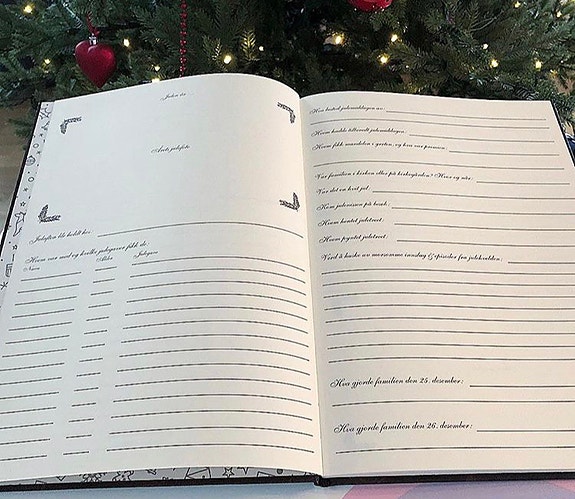 Julen år:
Årets julefoto
Julaften ble holdt hos:
Hvem var med og hvilke julegaver fikk de:
Navn Alder Julegave
Hva bestod julemiddagen av:
Hvem hadde tilberedt julemiddagen:
Hvem fikk mandelen i grøten, og hva var premien:
Var familien i kirken eller på kirkegården? Hvor og når:
Var det en hvit jul:
Kom julenissen på besøk:
Hvem hentet juletreet:
Hvem pyntet juletreet:
Verd å huske av morsomme innslag & episoder fra julekvelden:
Hva gjorde familien den 25. desember:
Hva gjorde familien den 26. desember: